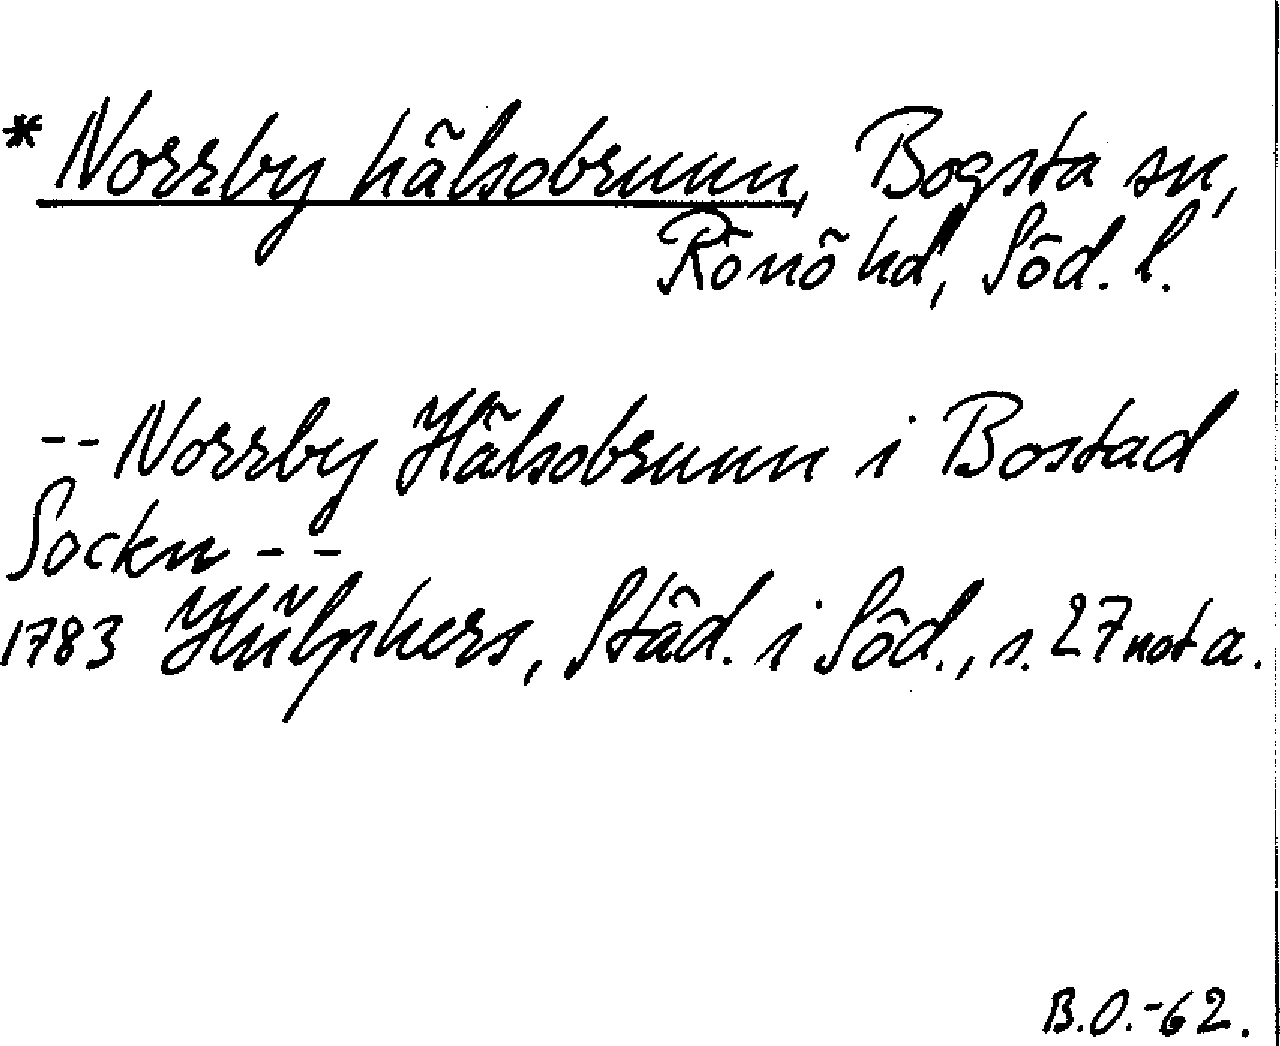 * Norrby hälsobrunn, Bogsta sn,
Rönö hd, Söd. l.
-- Norrby Hälsobrunn i Bostad
Sockn --
1783 Hülphers, Städ. i Söd., s. 27 not a.
B.O.-62.